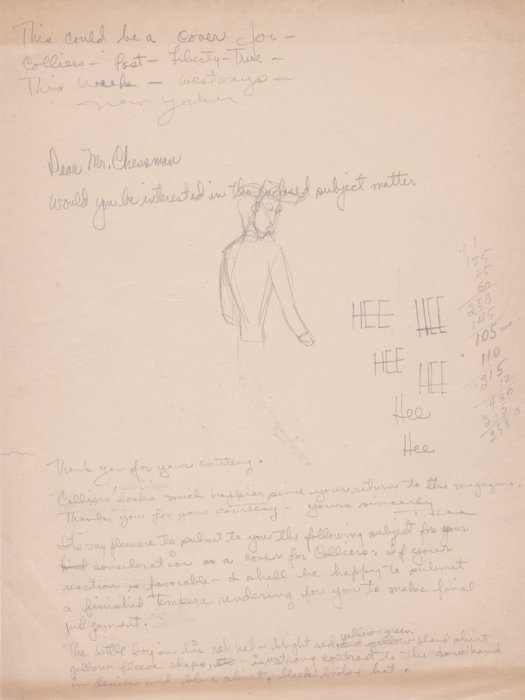 This could be a cover for –
Colliers – Post – Liberty – True –
This Week – Westways –
New Yorker
Dear Mr. Chessman
Would you be interested in the enclosed subject matter
HEE HEE
HEE HEE
Hee
Hee
125
60
250
145
105
110
215
12
430
215
2580
Thank you for your courtesy.
Colliers looks much happier since your return to the magazine.
Thank you for your courtesy – yours sincerely
T. Hee
It's my pleasure to submit to you the following subject for your
consideration as a cover for Colliers. If your
reaction is favorable – I shall be happy to submit
a finished tempera rendering for you to make final
judgement.
The little boy in his red hat – bright red, yellow green
plaid shirt
yellow fleece chaps, is in strong contrast to the cow hand
in denim and blue shirt, black boots & hat.